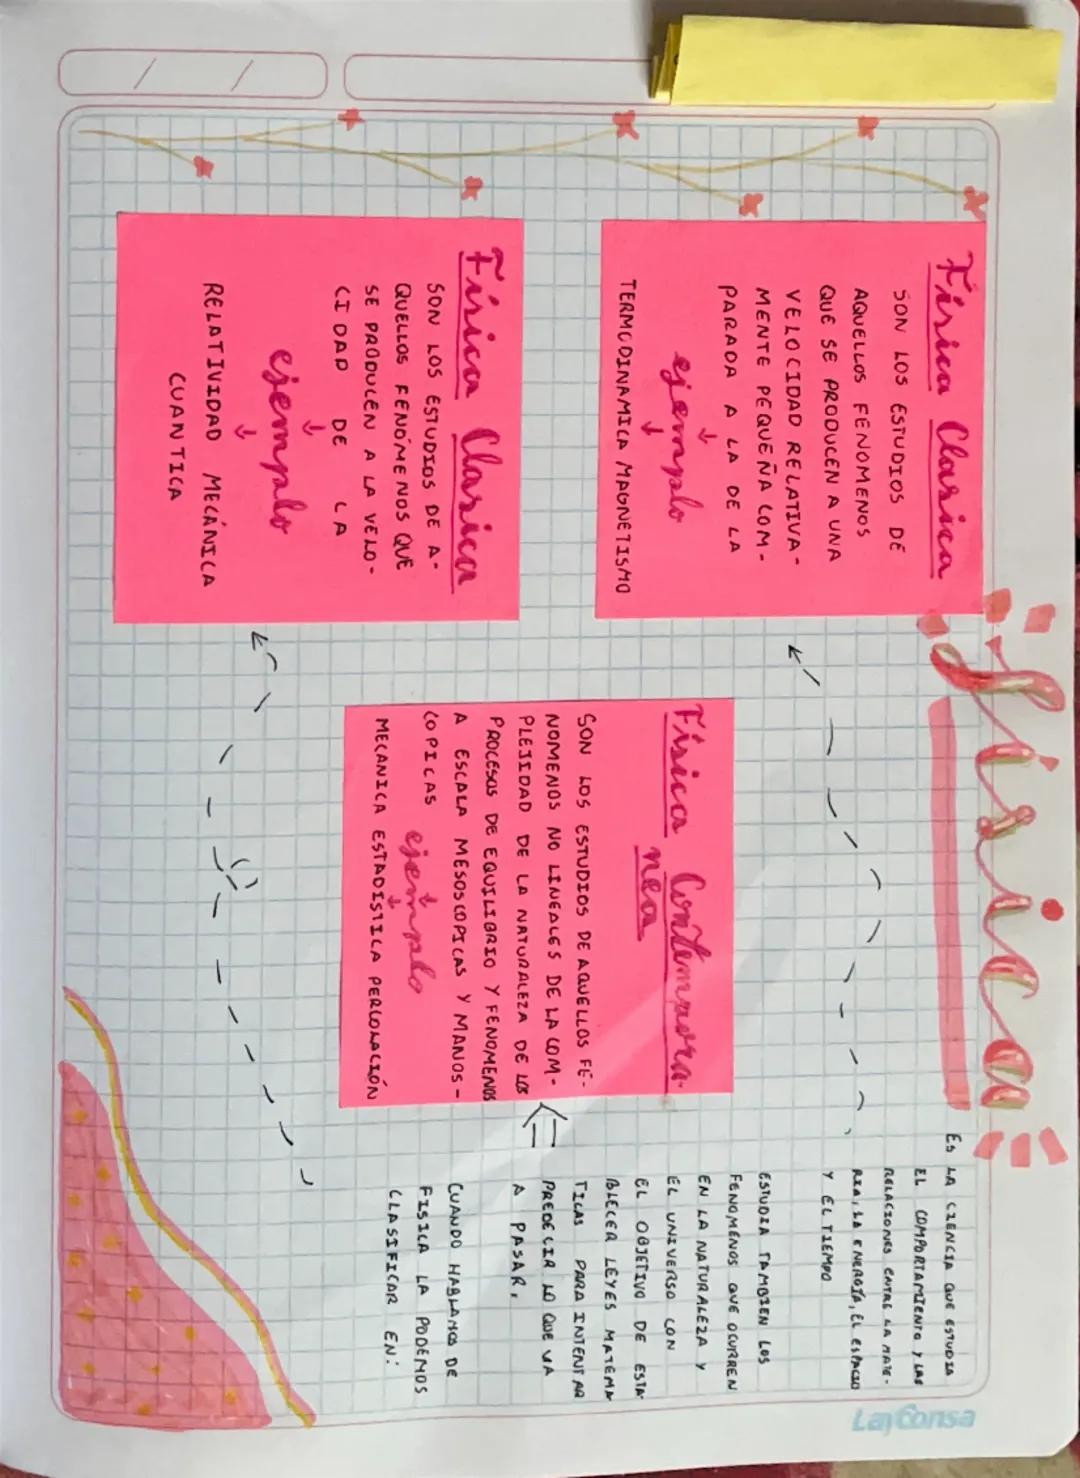 Física
Física Clasica
SON LOS ESTUDIOS DE
AQUELLOS FENOMENOS
QUE SE PRODUCEN A UNA
VELOCIDAD RELATIVA-
MENTE PEQUEÑA COM-
PARADA A LA DE LA
ejemplo
TERMODINAMICA MAGNETISMO
Física Clasica
SON LOS ESTUDIOS DE A-
QUELLOS FENÓMENOS QUE
SE PRODUCEN A LA VELO-
CIDAD DE LA
ejemplo
RELATIVIDAD MECÁNICA
CUANTICA
Física Contempora-
nea
SON LOS ESTUDIOS DE AQUELLOS FE-
NOMENOS NO LINEALES DE LA COM-
PLEJIDAD DE LA NATURALEZA DE LOS
PROCESOS DE EQUILIBRIO Y FENOMENOS
A ESCALA MESOSCOPICAS Y MANOS-
COPICAS
ejemplo
MECANICA ESTADÍSTICA PERCOLACIÓN
ES LA CIENCIA QUE ESTUDIA
EL COMPORTAMIENTO Y LAS
RELACIONES ENTRE LA MATE-
RIA, LA ENERGÍA, EL ESPACIO
Y EL TIEMPO
ESTUDIA TAMBIEN LOS
FENOMENOS QUE OCURREN
EN LA NATURALEZA Y
EL UNIVERSO CON
EL OBJETIVO DE ESTA-
BLECER LEYES MATEMA
TICAS PARA INTENTAR
PREDECIR LO QUE VA
A PASAR,
CUANDO HABLAMOS DE
FISICA LA PODEMOS
CLASIFICAR EN:
LayConsa